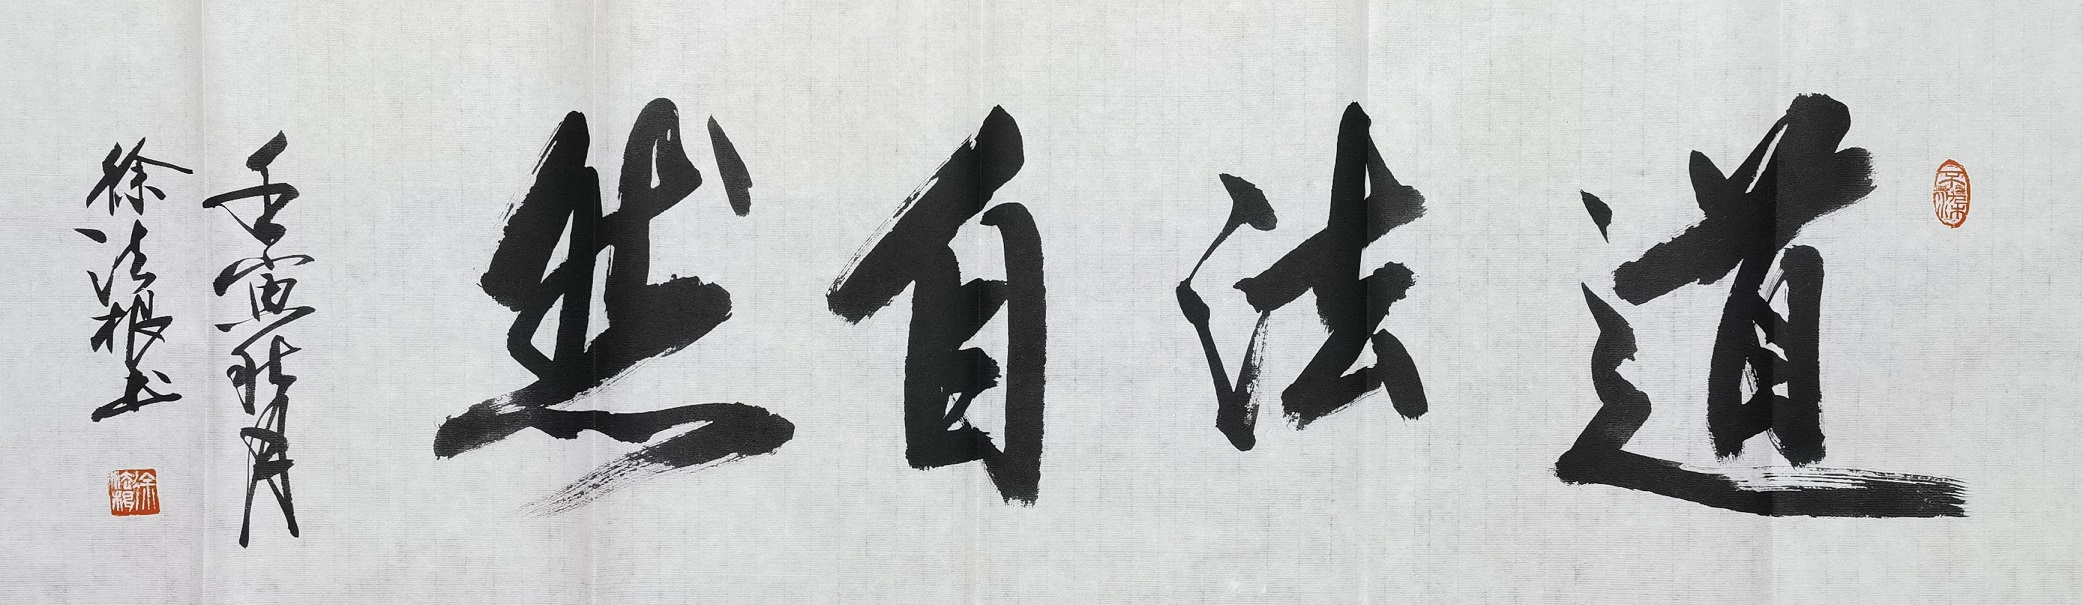 道法自然
壬寅秋月
徐法根书
徐法根